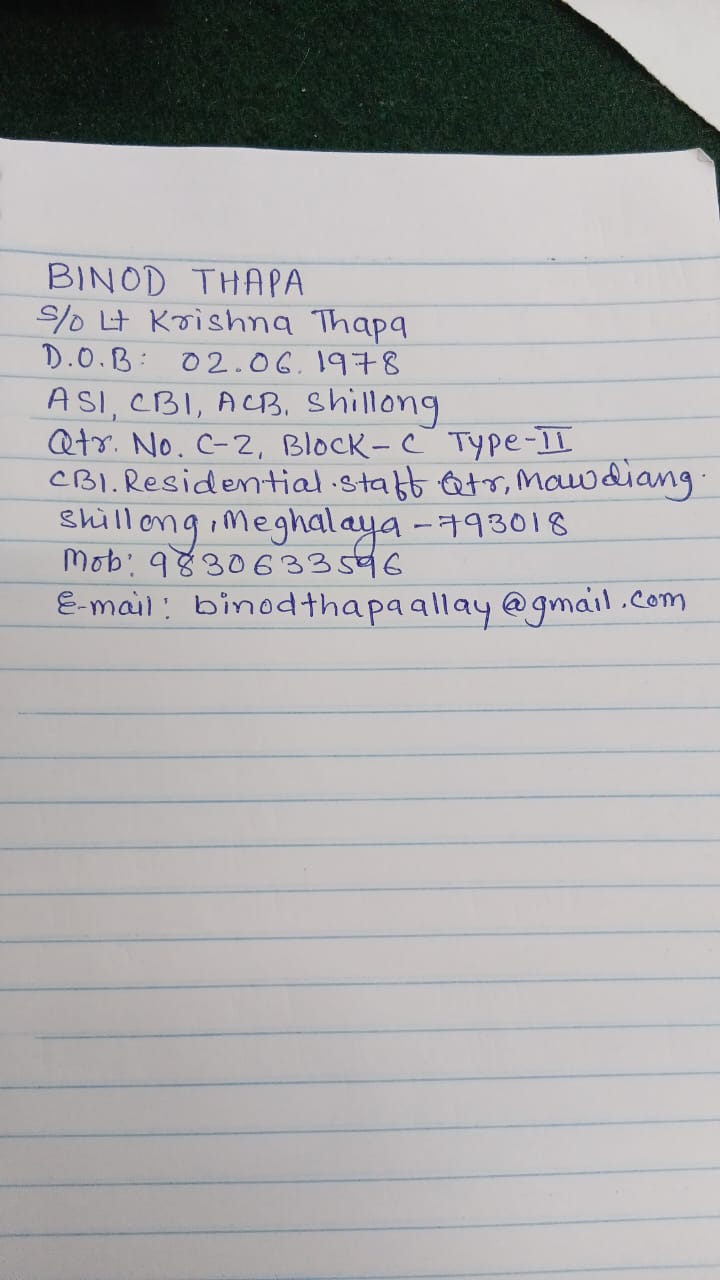 BINOD THAPA
S/o Lt Krishna Thapa
D.O.B: 02.06.1978
ASI, CBI, ACB, Shillong
Qtr. No. C-2, Block-C Type-II
CBI. Residential staff Qtr, Mawdiang.
Shillong, Meghalaya - 793018
Mob: 9830633596
E-mail: binodthapaallay@gmail.com